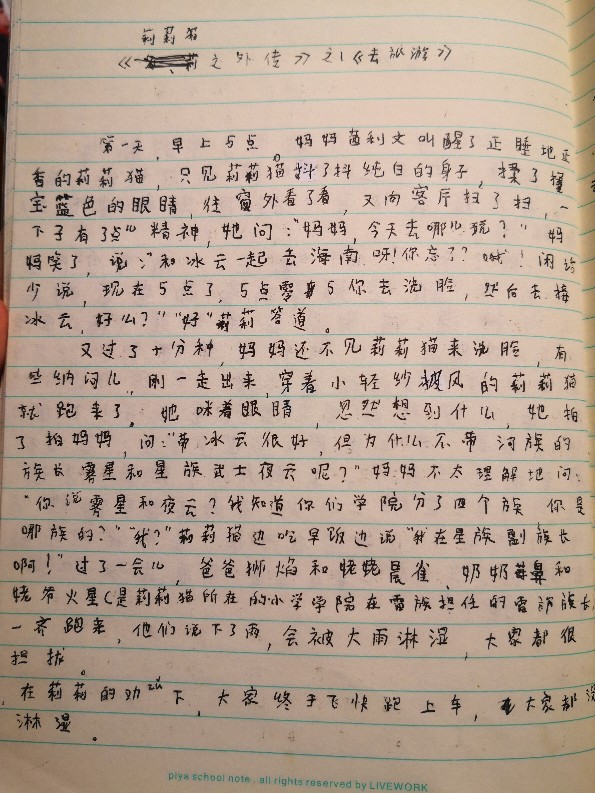 莉莉猫
《之外传》之1《去旅游》
第一天,早上5点。妈妈茵利文叫醒了正睡地正
香的莉莉猫,只见莉莉猫抖了抖纯白的身子,揉了揉
宝蓝色的眼睛,往窗外看了看,又向客厅扫了扫,一
下子有了点儿精神,她问:"妈妈,今天去哪儿玩?"妈
妈笑了,说:"和冰云一起去海南呀!你忘了?哦!闲话
少说,现在5点了,5点零5你去洗脸,然后去接
冰云,好么?""好"莉莉答道。
又过了十分种,妈妈还不见莉莉猫来洗脸,有
些纳闷儿,刚一走出来,穿着小轻纱披风的莉莉猫
就跑来了,她眯着眼睛,忽然想到什么,她拍
了拍妈妈,问:"带冰云很好,但为什么不带河族的
族长雾星和星族武士夜云呢?"妈妈不太理解地问:
"你说雾星和夜云?我知道你们学院分了四个族,你是
哪族的?""我?"莉莉猫边吃早饭边说"我在星族副族长
啊!"过了一会儿,爸爸狮焰和姥姥晨雀、奶奶莓鼻和
姥爷火星(是莉莉猫所在的小学学院在雷族担任的雷族族长
一齐跑来,他们说下了雨,会被大雨淋湿,大家都很
担拔。
在莉莉的劝说下,大家终于飞快跑上车,大家都没
淋湿。
piya school note . all rights reserved by LIVEWORK